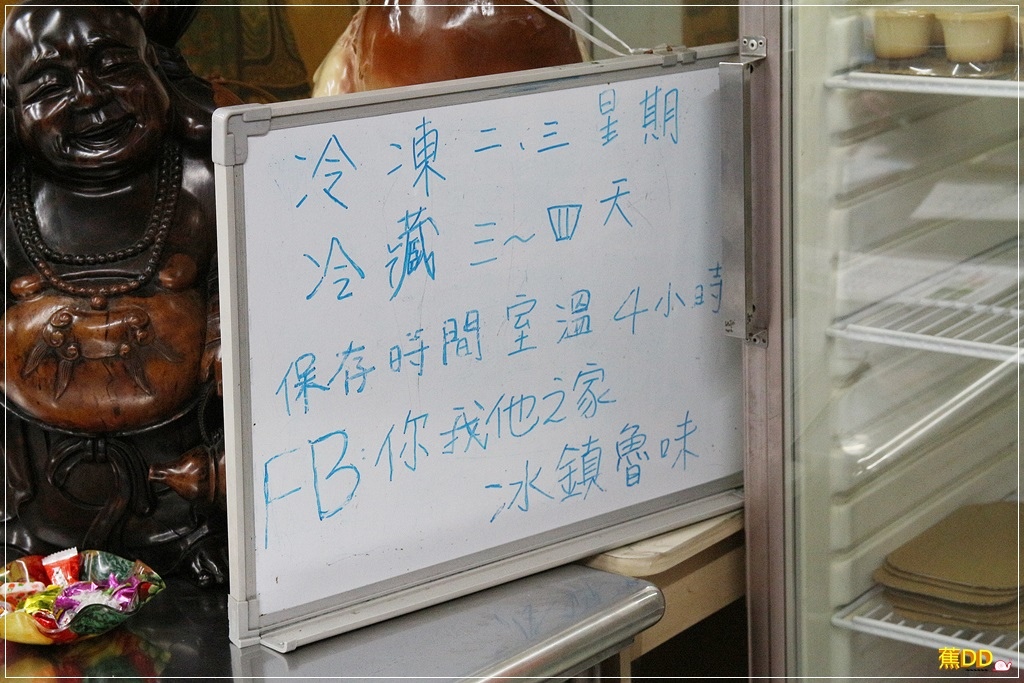 冷凍二、三星期
冷藏三～四天
保存時間室溫4小時
FB你我他之家
冰鎮魯味
蕉DD